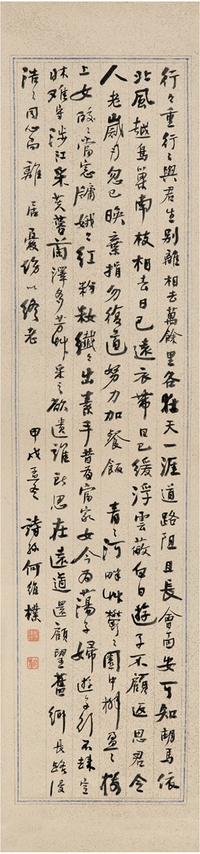 行々重行々與君生别離相去萬餘里各在天一涯道路阻且長會面安可知胡馬依
北風越鳥巢南枝相去日已遠衣帶日已緩浮雲蔽白日遊子不顧返思君令
人老歲月忽已晚棄捐勿復道努力加餐飯 青々河畔草鬱々園中柳盈々樓
上女皎々當窗牖娥々紅粉妝纖々出素手昔為倡家女今為蕩子婦遊子行不歸空
牀難守 涉江采芙蓉蘭澤多芳草采之欲遺誰所思在遠道還顧望舊鄉長路漫
浩々同心而離居憂傷以終老
甲戌 詩孫何維樸